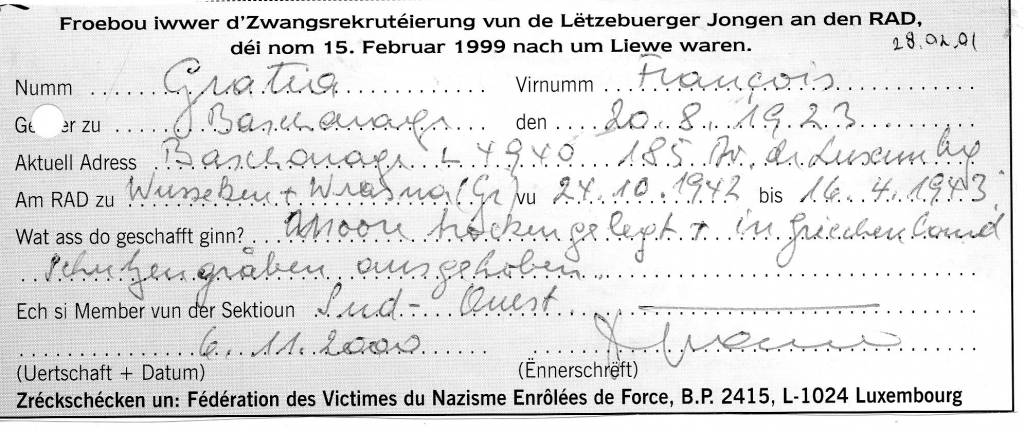 Froebou iwwer d'Zwangsrekrutéierung vun de Lëtzebuerger Jongen an den RAD,
déi nom 15. Februar 1999 nach um Liewe waren.
28.02.01
Numm Gratia Virnumm François
Ge er zu Bascharage den 20.8.1923
Aktuell Adress Bascharage L 4940 185 Av. de Luxembg
Am RAD zu Wusseken + (Gr) vu 24.10.1942 bis 16.4.1943
Wat ass do geschafft ginn? Moore trocken gelegt + in Griechenland
Schutzengräben ausgehoben
Ech si Member vun der Sektioun Sud-Ouest
6.11.2000
(Uertschaft + Datum) (Ënnerschrëft)
Zréckschécken un: Fédération des Victimes du Nazisme Enrôlées de Force, B.P. 2415, L-1024 Luxembourg